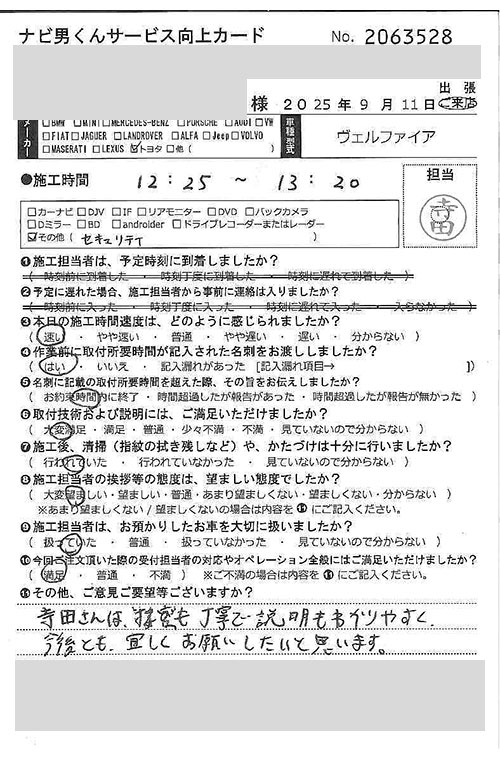 ナビ男くんサービス向上カード No. 2063528
様 2025年9月11日 出張 ご来店
メーカー □BMW □MINI □MERCEDES-BENZ □PORSCHE □AUDI □VW
□FIAT □JAGUER □LANDROVER □ALFA □Jeep □VOLVO
□MASERATI □LEXUS ☑トヨタ □他( )
車種型式 ヴェルファイア
●施工時間 12:25 ~ 13:20
担当 寺田
□カーナビ □DJV □IF □リアモニター □DVD □バックカメラ
□Dミラー □BD □androider □ドライブレコーダーまたはレーダー
☑その他( セキュリティ )
❶施工担当者は、予定時刻に到着しましたか?
( 時刻前に到着した ・ 時刻丁度に到着した ・ 時刻に遅れて到着した )
❷予定に遅れた場合、施工担当者から事前に連絡は入りましたか?
( 時刻前に入った ・ 時刻丁度に入った ・ 時刻に遅れて入った ・ 入らなかった )
❸本日の施工時間速度は、どのように感じられましたか?
( 速い ・ やや速い ・ 普通 ・ やや遅い ・ 遅い ・ 分からない )
❹作業前に取付所要時間が記入された名刺をお渡ししましたか?
( はい ・ いいえ ・ 記入漏れがあった [記入漏れ項目→ ])
❺名刺に記載の取付所要時間を超えた際、その旨をお伝えしましたか?
( お約束時間内に終了 ・ 時間超過したが報告があった ・ 時間超過したが報告が無かった )
❻取付技術および説明には、ご満足いただけましたか?
( 大変満足 ・ 満足 ・ 普通 ・ 少々不満 ・ 不満 ・ 見ていないので分からない )
❼施工後、清掃(指紋の拭き残しなど)や、かたづけは十分に行いましたか?
( 行われていた ・ 行われていなかった ・ 見ていないので分からない )
❽施工担当者の挨拶等の態度は、望ましい態度でしたか?
( 大変望ましい・望ましい・普通・あまり望ましくない・望ましくない・分からない )
※あまり望ましくない/望ましくないの場合は内容を⓫にご記入ください。
❾施工担当者は、お預かりしたお車を大切に扱いましたか?
( 扱っていた ・ 普通 ・ 扱っていなかった ・ 見ていないので分からない )
❿今回ご注文頂いた際の受付担当者の対応やオペレーション全般にはご満足いただけましたか?
( 満足 ・ 普通 ・ 不満 ) ※ご不満の場合は内容を⓫にご記入ください。
⓫その他、ご意見ご要望等ございますか?
寺田さんは、接客も丁寧で説明もわかりやすく、
今後とも、宜しくお願いしたいと思います。